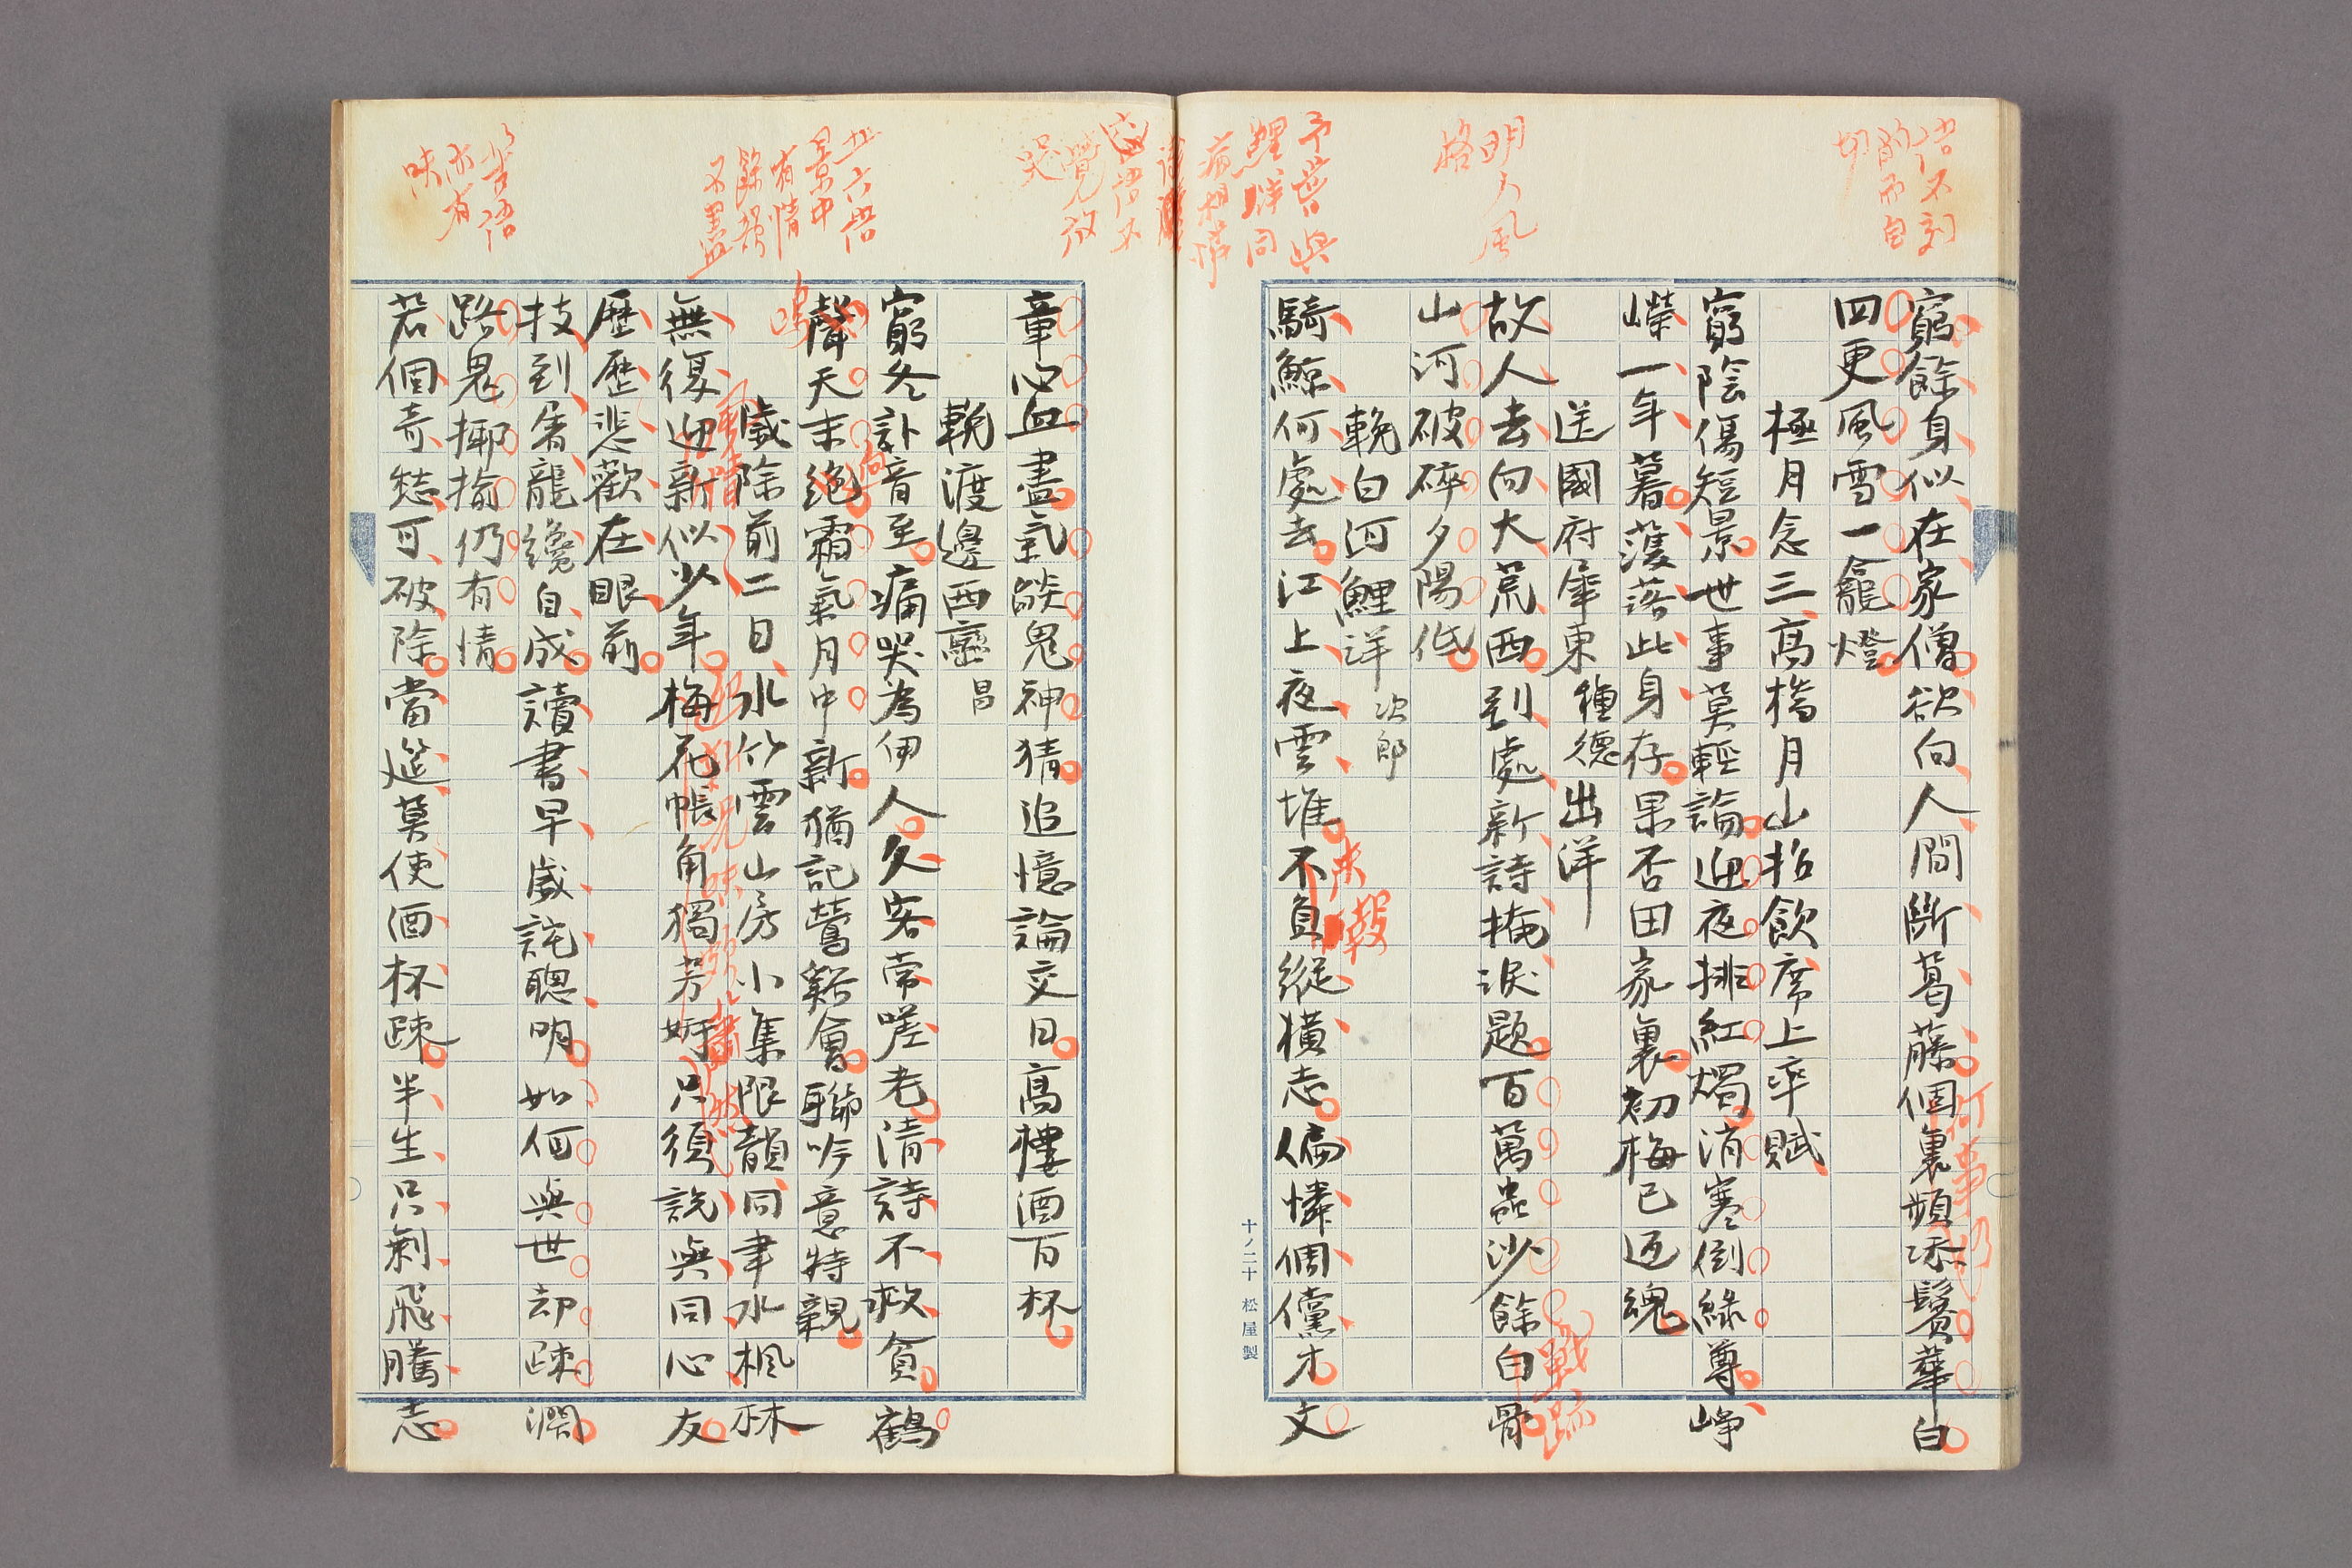 窮餘身似在家僧欲向人間斷葛藤個裏頻添鬢華白
四更風雪一龕燈
極月念三高橋月山招飲席上率賦
窮陰傷短景世事莫輕論迎夜排紅燭消寒倒綠尊崢
嶸一年暮濩落此身存果否田家裏初梅已返魂
送國府犀東種德出洋
故人去向大荒西到處新詩掩淚題百萬蟲沙餘白骨
戰跡
山河破碎夕陽低
輓白河鯉洋次郎
騎鯨何處去江上夜雲堆不負縱橫志偏憐倜儻才文
未報
明人風
格
予嘗與
鯉洋同
病相憐
十ノ二十 松屋製
章心血盡氣燄鬼神猜追憶論交日高樓酒百杯
輓渡邊西崦昌
窮冬訃音至痛哭為伊人久客常嗟老清詩不救貧鶴
聲天末絕霜氣月中新猶記鶯谿會聯吟意特親
歲除前二日水竹雲山房小集限韻同聿水楓林
無復迎新似少年梅花帳角獨芳妍只須說與同心友
歷歷悲歡在眼前
技到屠龍纔自成讀書早歲詫聰明如何與世却疎濶
路鬼揶揄仍有情
若個奇愁可破除當筵莫使酒杯疎半生只剩飛騰志
五六語
景中
有情
餘韻
不盡
苦語
亦有
味